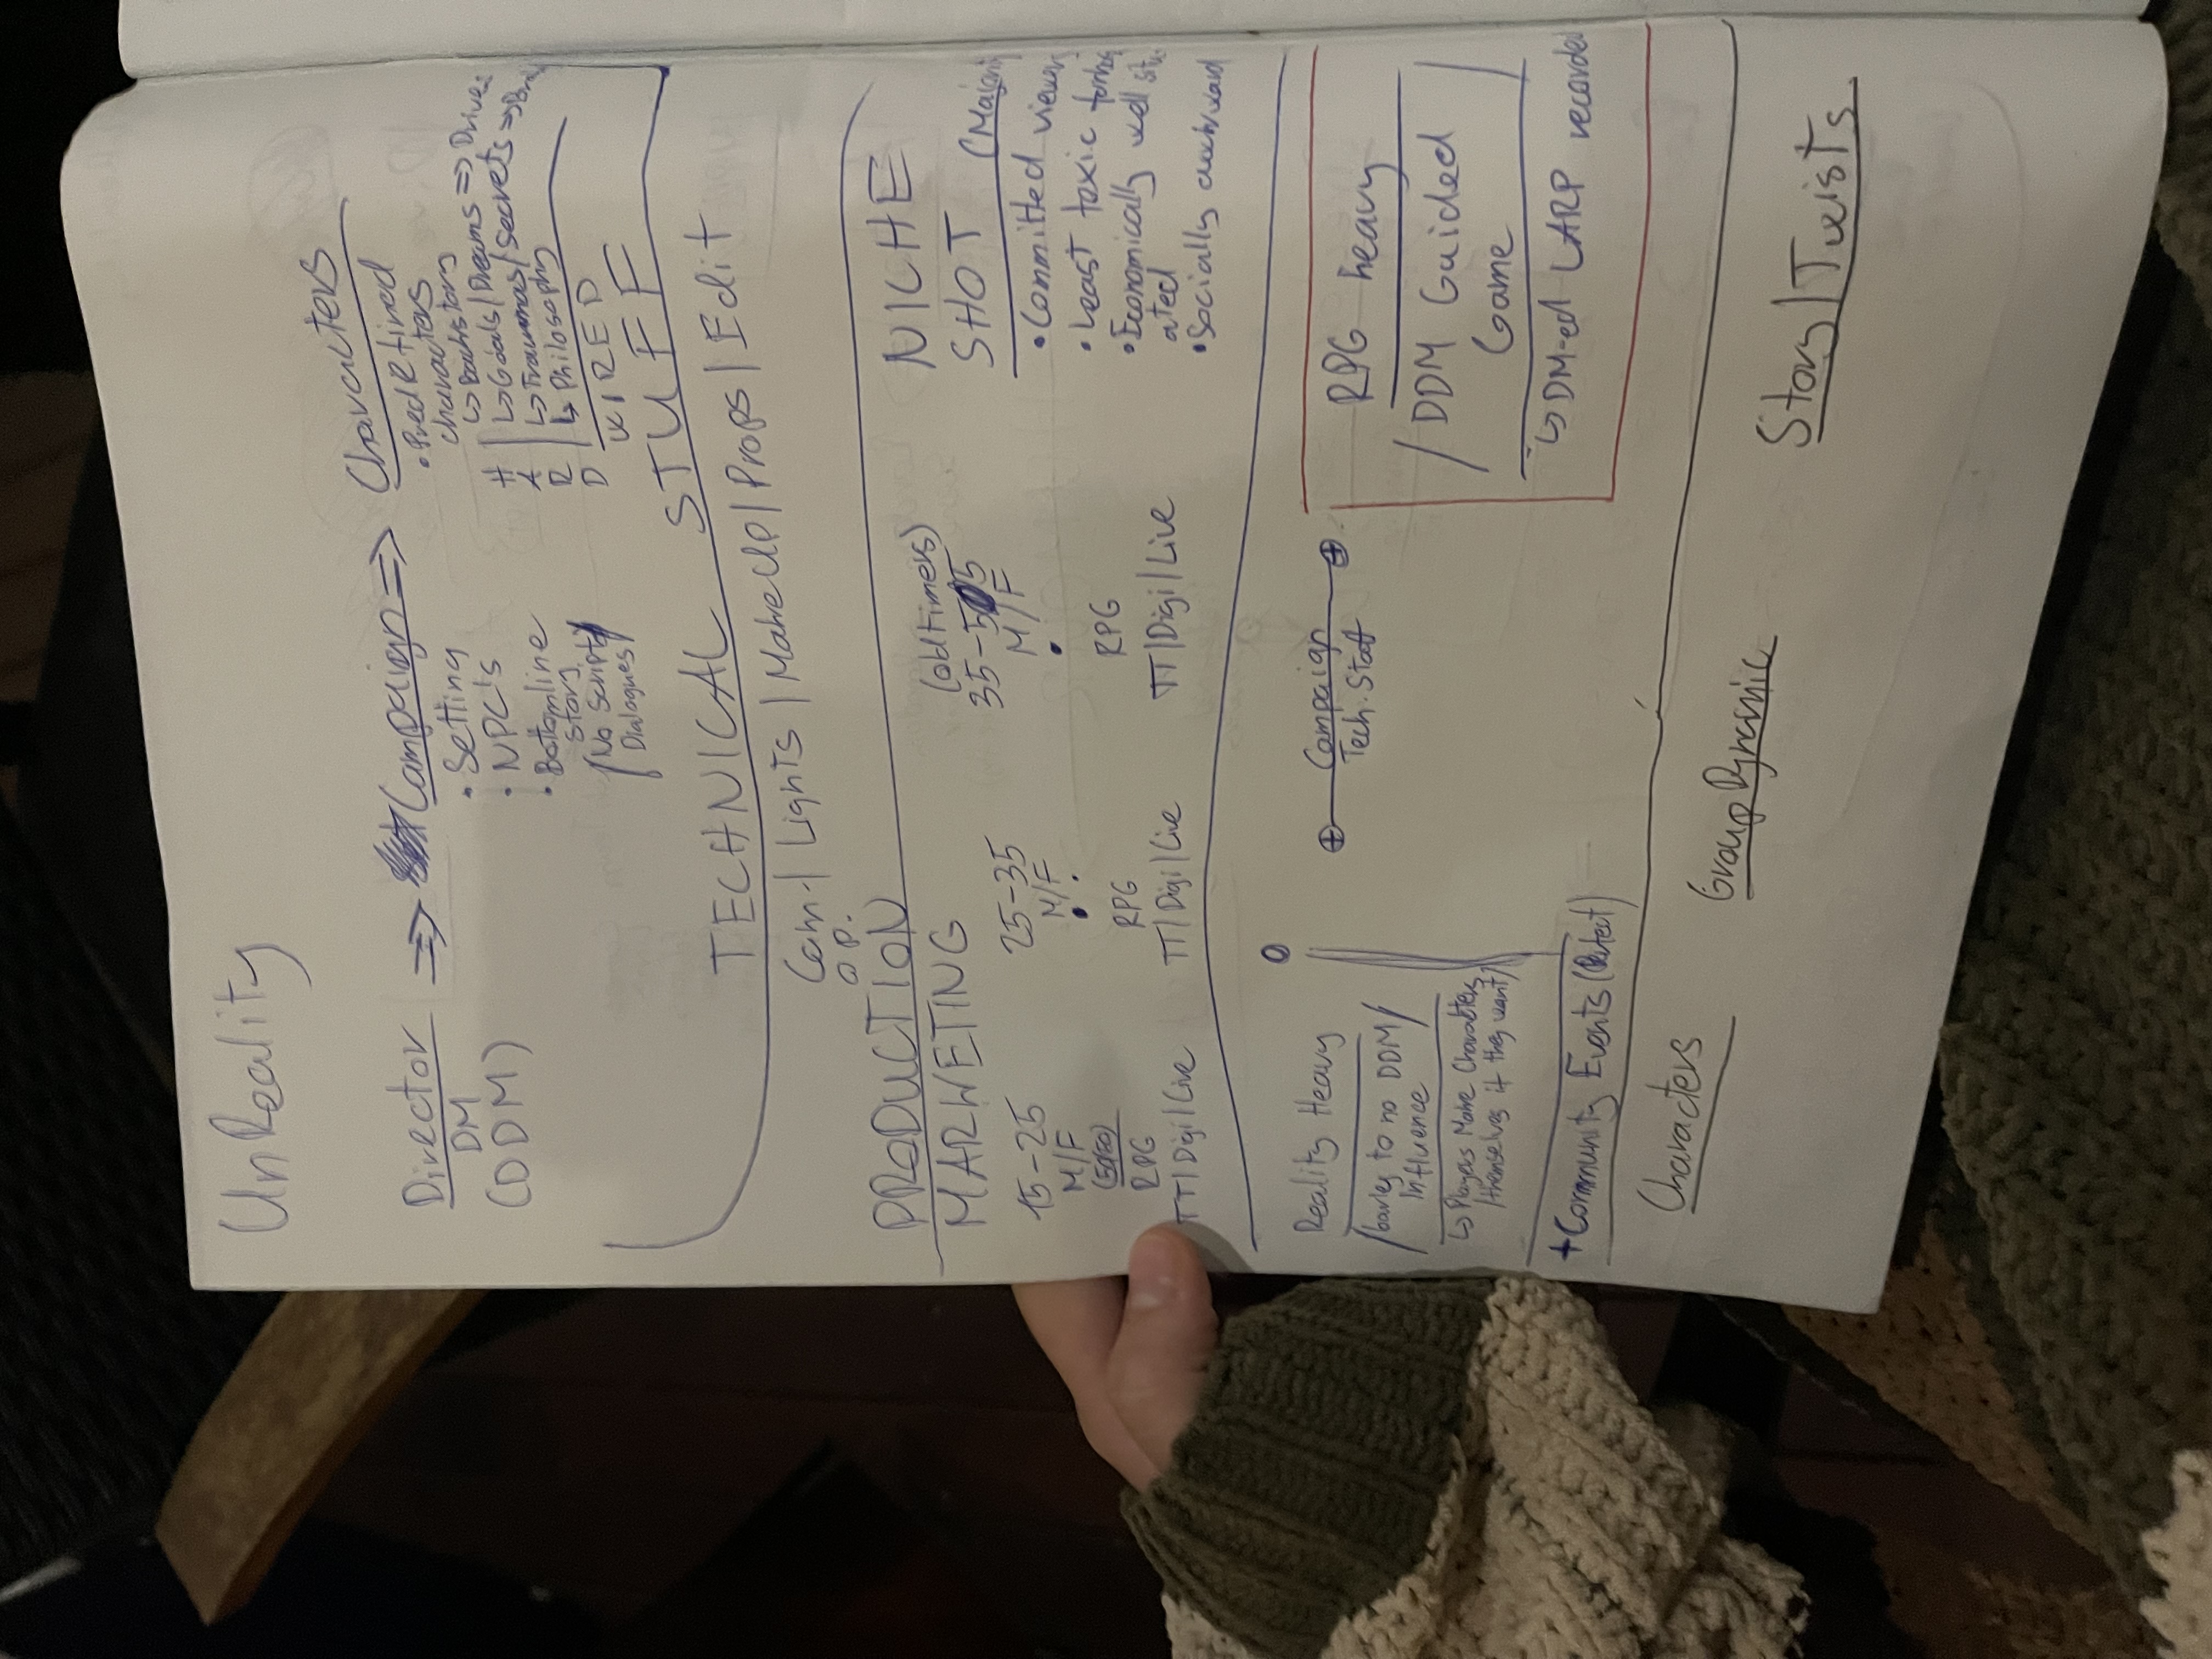 UnReality
Director => Campaign => Characters
DM
(DDM)
• Setting
• NPC's
• Bottomline
story
/No Script/
Dialogues/
• PredRefined
characters
↳ Backstory
H | ↳ Goals/Dreams => Drives
A | ↳ Traumas/Secrets =>
R | ↳ Philosophy
D
WIRED
TECHNICAL STUFF
Cam. | Lights | MakeUp | Props | Edit
OP.
PRODUCTION
MARKETING
15-25
M/F
RPG
TT|Digi|Live
25-35
M/F
• •
RPG
TT|Digi|Live
(oldtimers)
35-55
M/F
•
RPG
TT|Digi|Live
NICHE
SHOT (Majority
• Committed viewers
• Least toxic
• Economically well situ
ated
• Socially awkward
Reality Heavy
/barley to no DDM/
Influence
↳ Players Make Characters
/themselves if they want/
+ Community Events
Campaign
Tech. Staff
RPG heavy
/DDM Guided
Game/
↳ DM-ed LARP recorded
Characters
Group Dynamic
Story/Twists